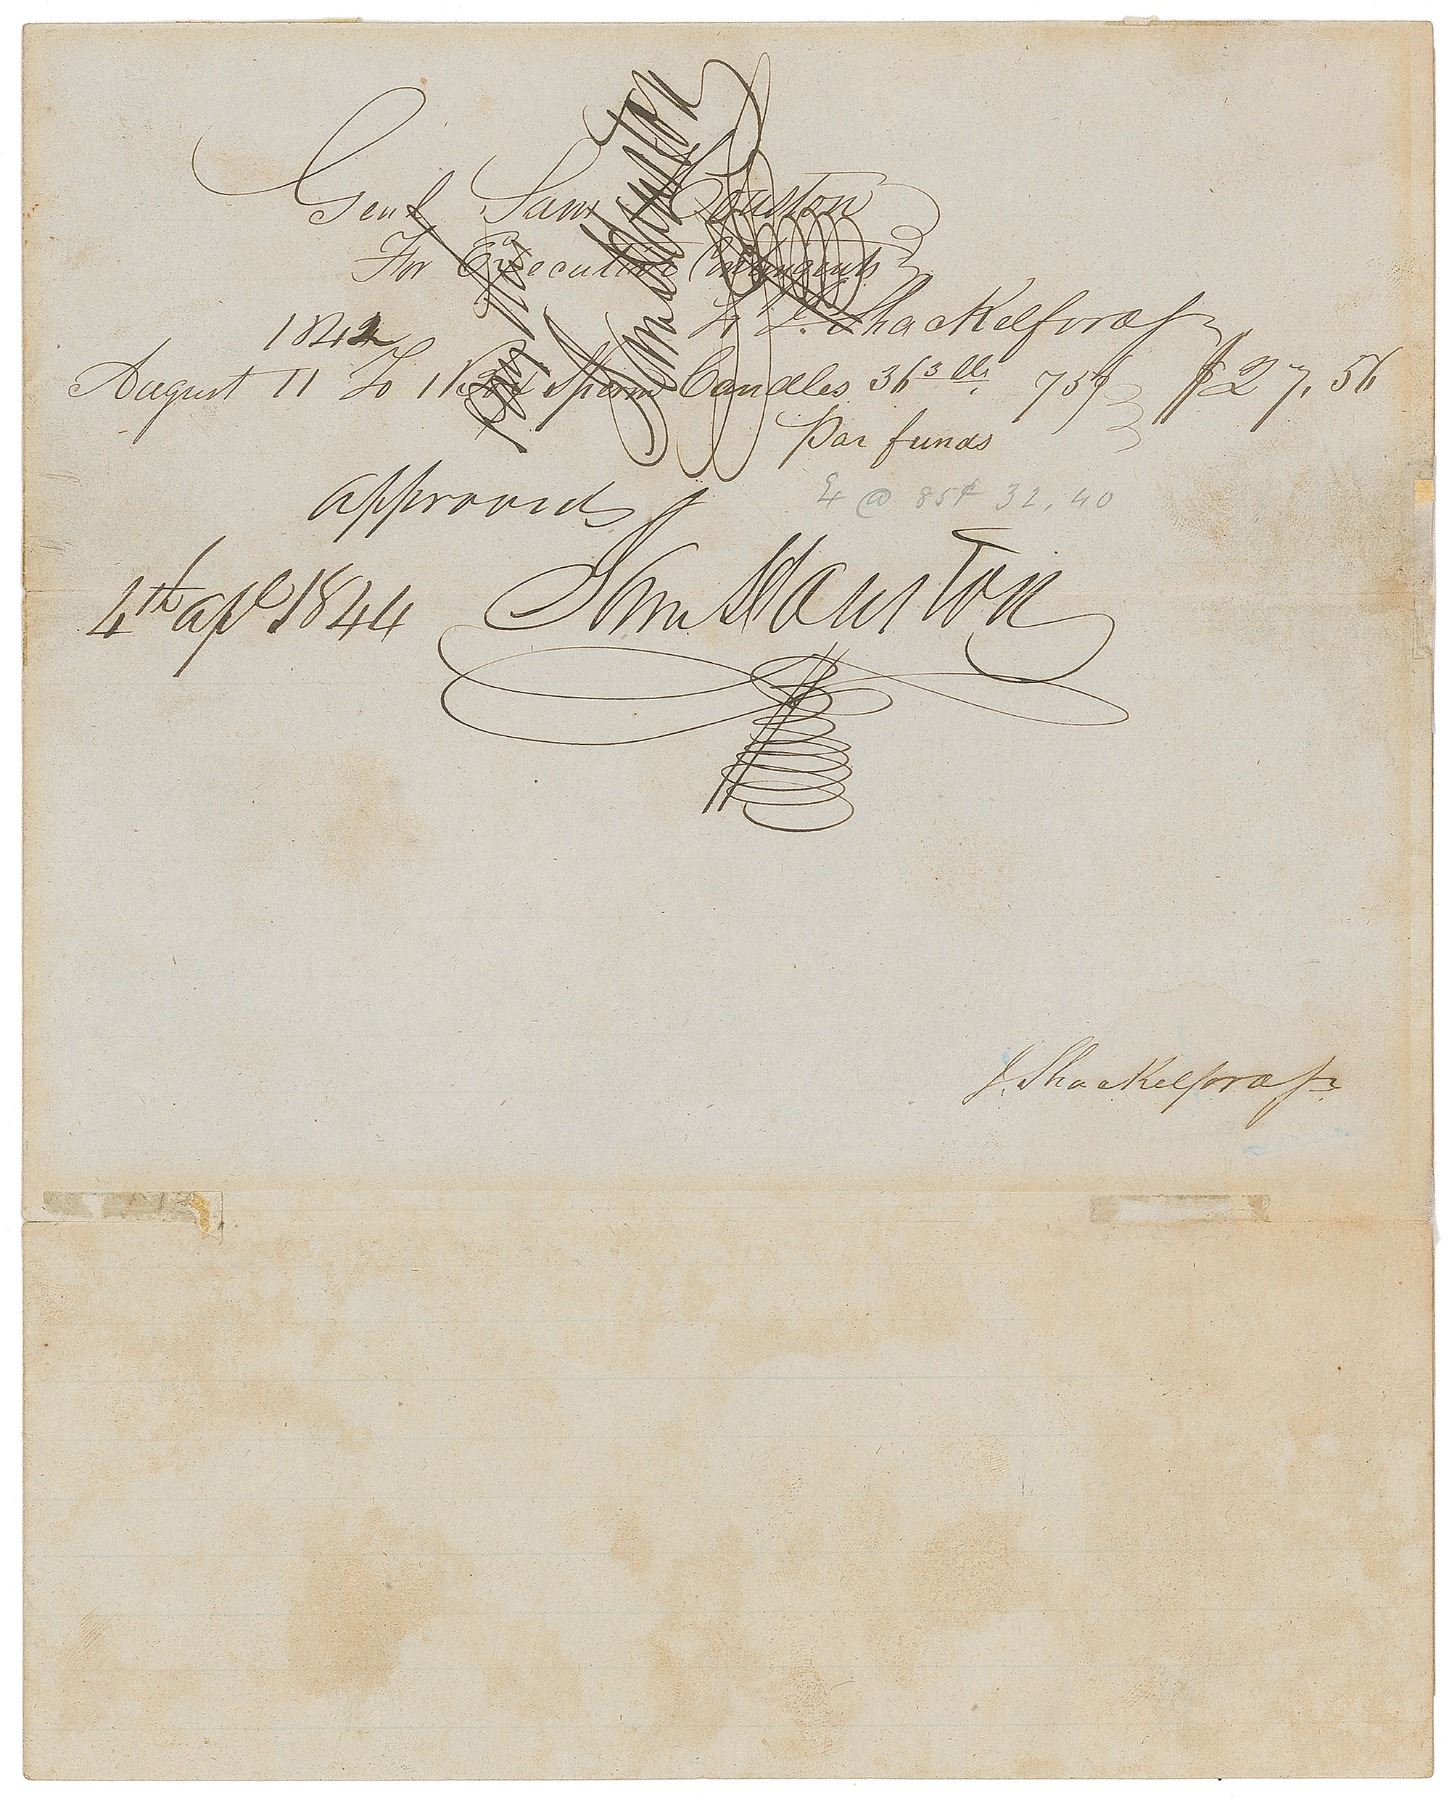 Genl Sam Houston
For Executive Contingents
To J. Shackelford Jr
1842
August 11 To 1 Box Sperm Candles 36 3/4 lbs 75¢ $27,56
Par funds
@ 85¢ 32.40
Pay this
Sam Houston
approved
4th apl 1844 Sam Houston
J. Shackelford Jr